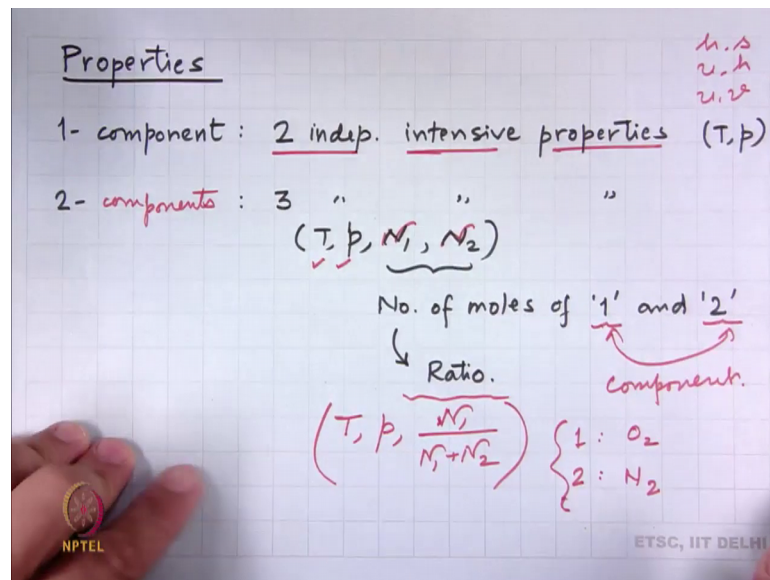 h.s
u.h
u.v
Properties
1- component : 2 indep. intensive properties (T,p)
2- components : 3 " " "
(T, p, N1, N2)
No. of moles of '1' and '2'
Ratio.
component.
(T, p, N1/N1+N2) { 1 : O2
2 : N2
NPTEL
ETSC, IIT DELHI